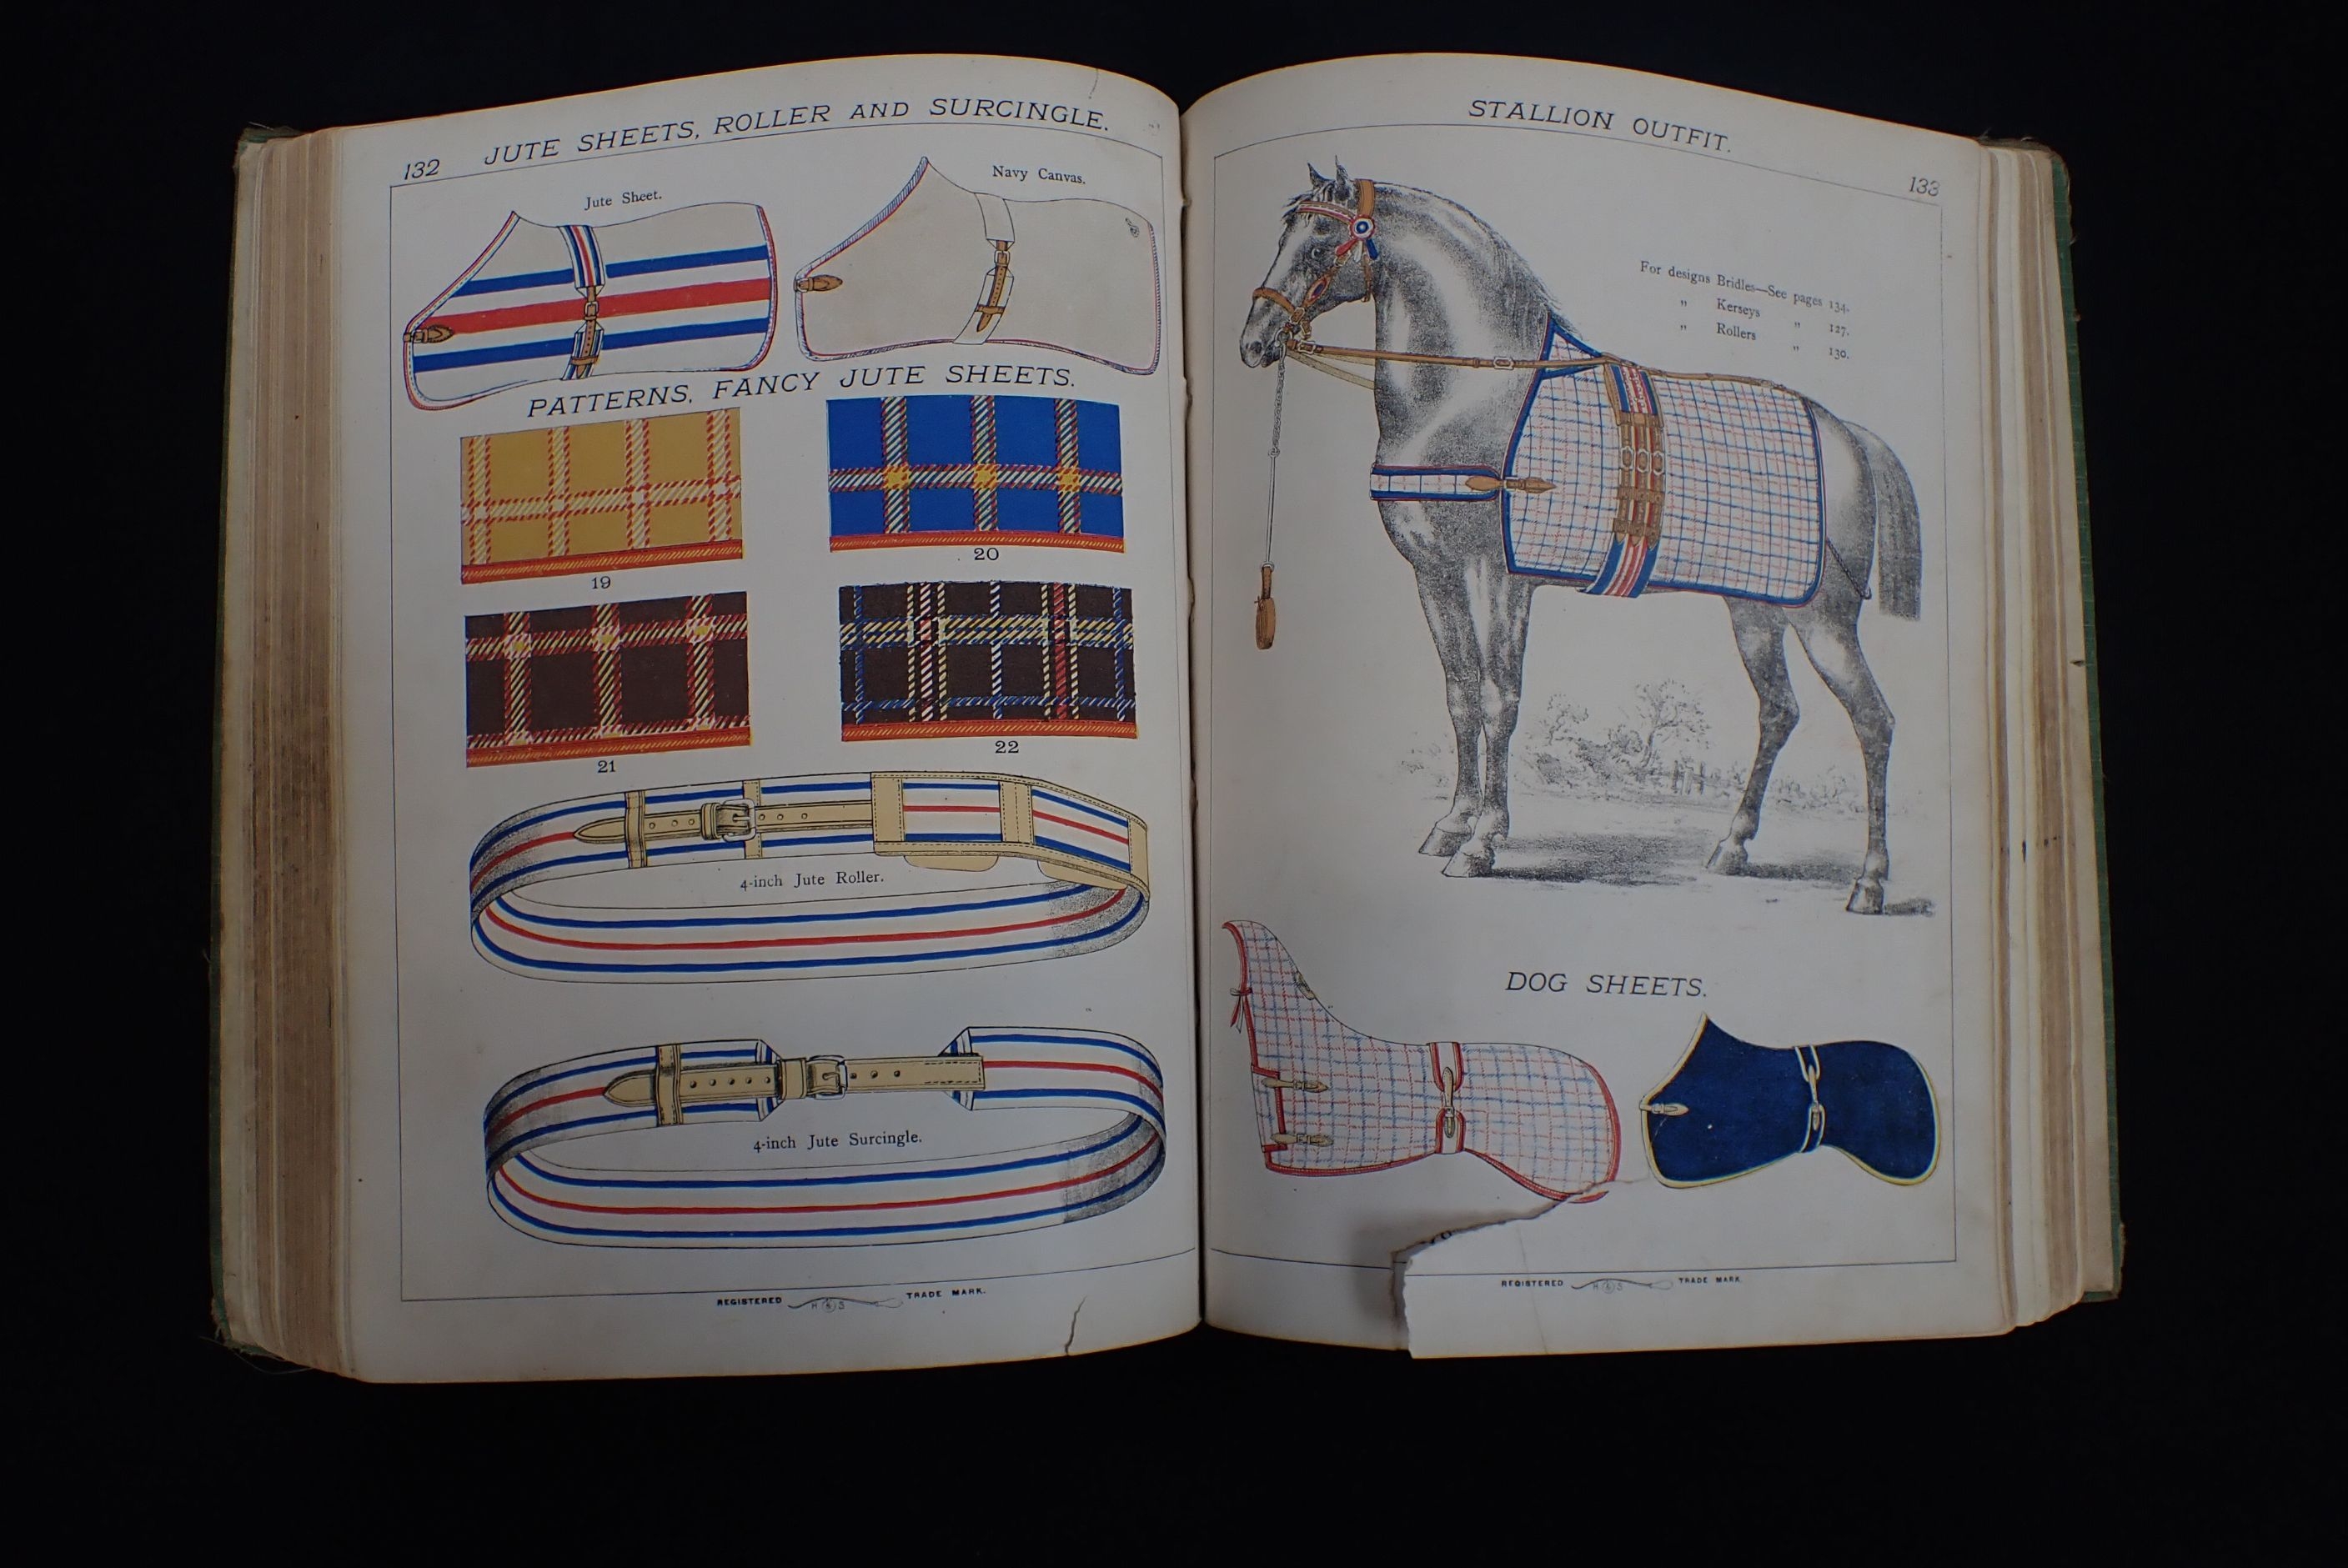 132 JUTE SHEETS, ROLLER AND SURCINGLE.
Jute Sheet.
Navy Canvas.
PATTERNS, FANCY JUTE SHEETS.
19
20
21
22
4-inch Jute Roller.
4-inch Jute Surcingle.
REGISTERED H & S TRADE MARK.
STALLION OUTFIT.
133
For designs Bridles—See pages 134.
" Kerseys " 127.
" Rollers " 130.
DOG SHEETS.
REGISTERED H & S TRADE MARK.